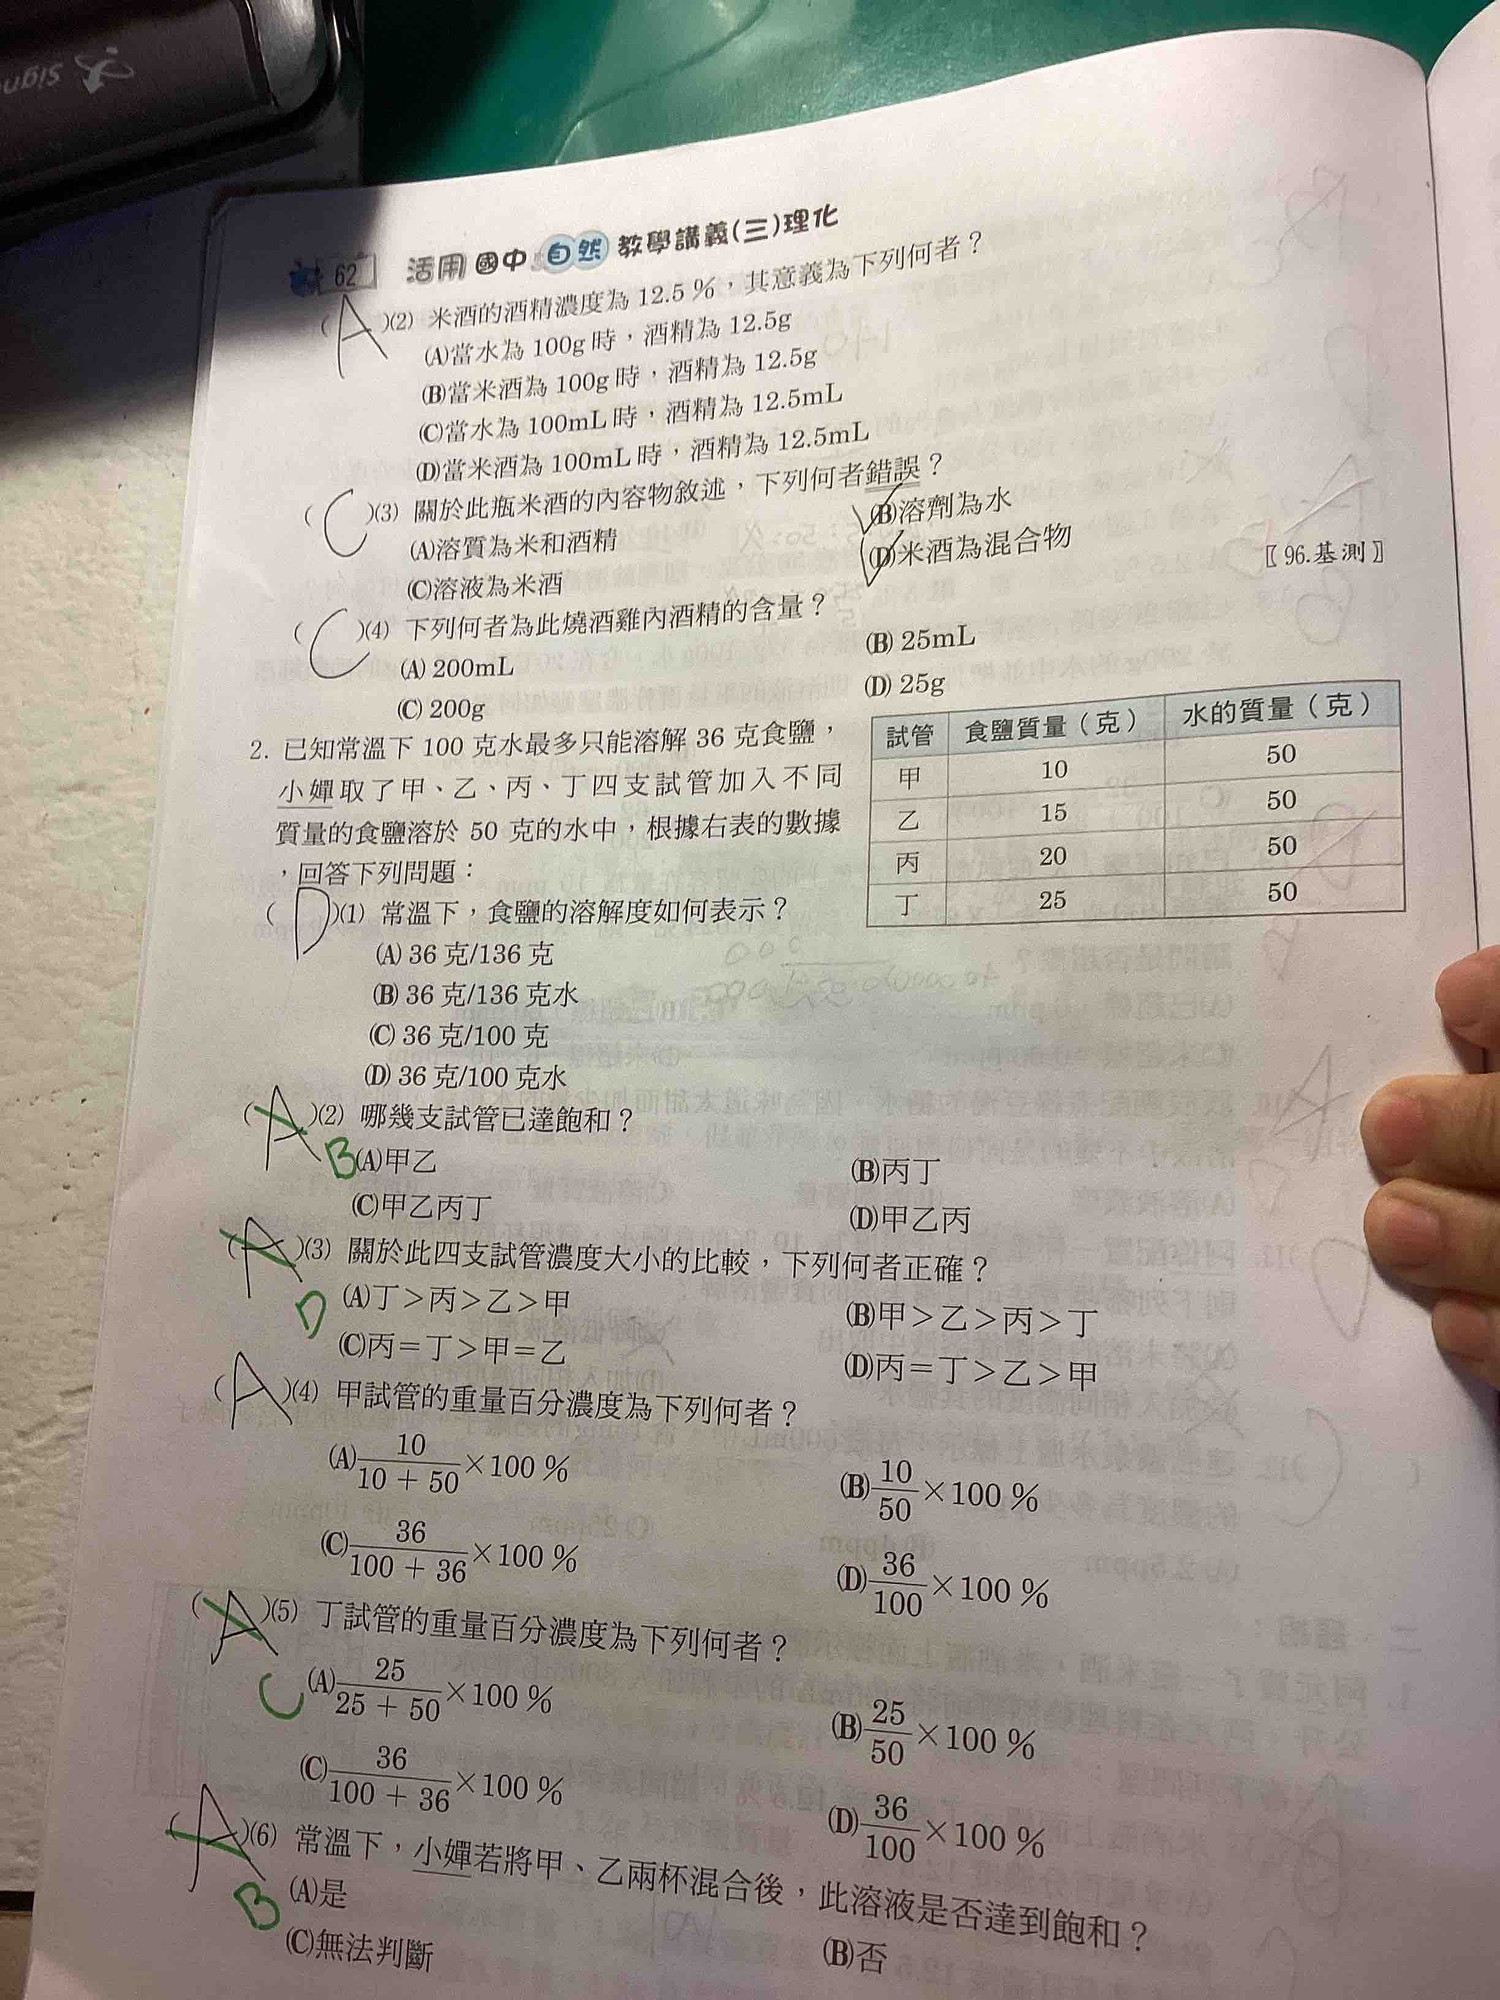 Sign
62 活用 國中 自然 教學講義(三)理化
(A)(2) 米酒的酒精濃度為 12.5 %,其意義為下列何者?
(A)當水為 100g 時,酒精為 12.5g
(B)當米酒為 100g 時,酒精為 12.5g
(C)當水為 100mL 時,酒精為 12.5mL
(D)當米酒為 100mL 時,酒精為 12.5mL
(C)(3) 關於此瓶米酒的內容物敘述,下列何者錯誤?
(A)溶質為米和酒精 (B)溶劑為水
(C)溶液為米酒 (D)米酒為混合物
〖96.基測〗
(C)(4) 下列何者為此燒酒雞內酒精的含量?
(A) 200mL (B) 25mL
(C) 200g (D) 25g
2. 已知常溫下 100 克水最多只能溶解 36 克食鹽,
小嬋取了甲、乙、丙、丁四支試管加入不同
質量的食鹽溶於 50 克的水中,根據右表的數據
,回答下列問題:
試管 食鹽質量(克) 水的質量(克)
甲 10 50
乙 15 50
丙 20 50
丁 25 50
(D)(1) 常溫下,食鹽的溶解度如何表示?
(A) 36 克/136 克
(B) 36 克/136 克水
(C) 36 克/100 克
(D) 36 克/100 克水
(A)(2) 哪幾支試管已達飽和?
B
(A)甲乙 (B)丙丁
(C)甲乙丙丁 (D)甲乙丙
(A)(3) 關於此四支試管濃度大小的比較,下列何者正確?
D
(A)丁>丙>乙>甲 (B)甲>乙>丙>丁
(C)丙=丁>甲=乙 (D)丙=丁>乙>甲
(A)(4) 甲試管的重量百分濃度為下列何者?
(A) 10/(10 + 50) ×100 % (B) 10/50 ×100 %
(C) 36/(100 + 36) ×100 % (D) 36/100 ×100 %
(A)(5) 丁試管的重量百分濃度為下列何者?
C
(A) 25/(25 + 50) ×100 % (B) 25/50 ×100 %
(C) 36/(100 + 36) ×100 % (D) 36/100 ×100 %
(A)(6) 常溫下,小嬋若將甲、乙兩杯混合後,此溶液是否達到飽和?
B
(A)是 (B)否
(C)無法判斷